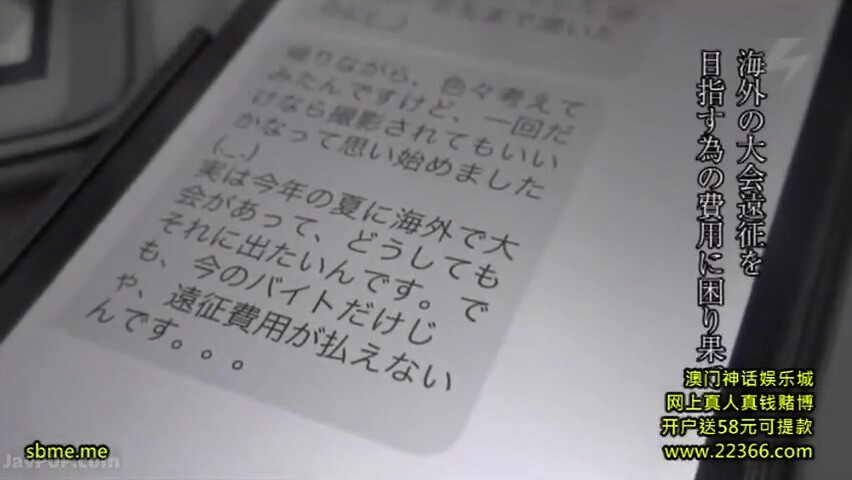 みに(_ _)
帰りながら、色々考えて
みたんですけど、一回だ
けなら撮影されてもいい
かなって思い始めました
(_ _)
実は今年の夏に海外で大
会があって、どうしても
それに出たいんです。で
も、今のバイトだけじ
ゃ、遠征費用が払えない
んです。。。
海外の大会遠征を
目指す為の費用に困り果
澳门神话娱乐城
网上真人真钱赌博
开户送58元可提款
www.22366.com
sbme.me
JavPOP.com